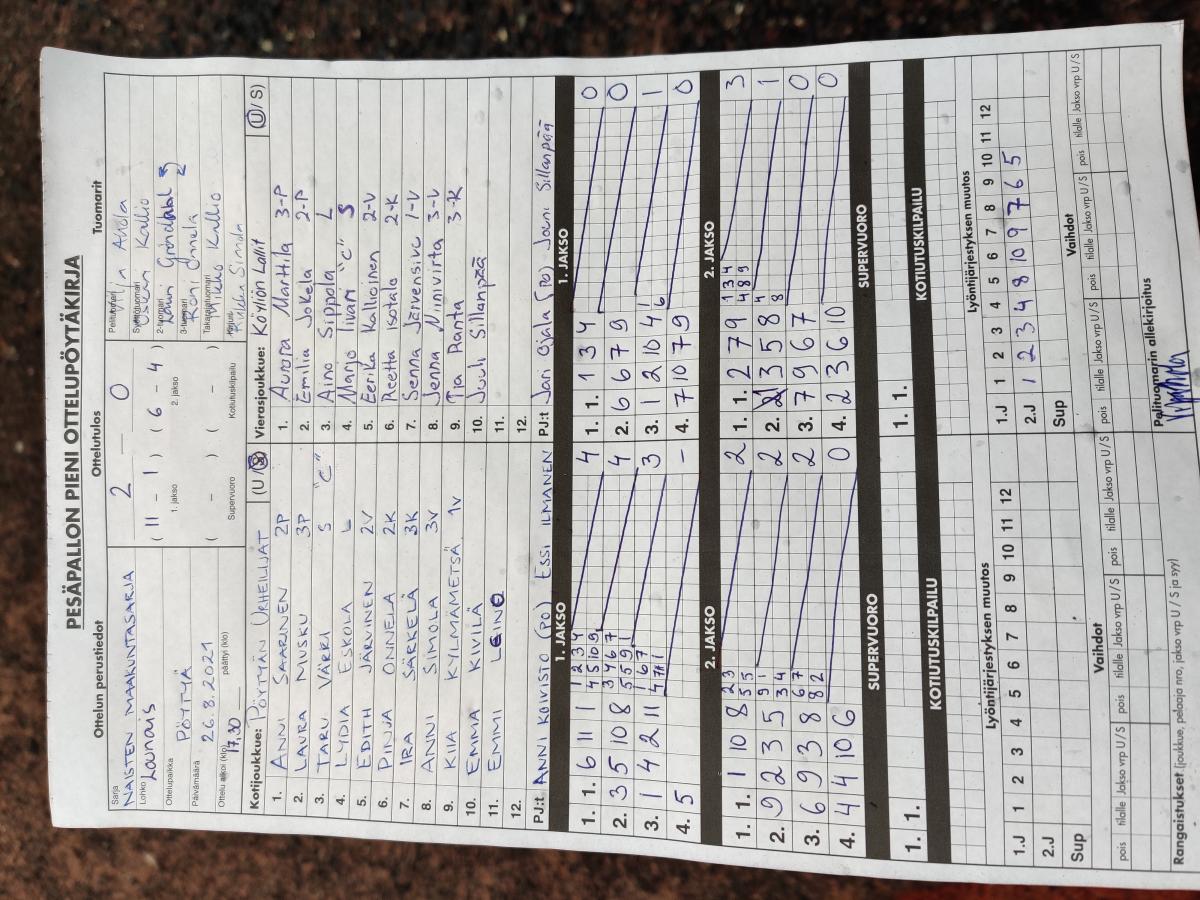 PESÄPALLON PIENI OTTELUPÖYTÄKIRJA
Ottelun perustiedot Ottelutulos Tuomarit
Sarja
NAISTEN MAAKUNTASARJA
Lohko
Lounais
Ottelupaikka
PÖYTYÄ
Päivämäärä
26.8.2021
Ottelu alkoi (klo) päättyi (klo)
17.30
2 — 0
( 11 - 1 ) ( 6 - 4 )
1. jakso 2. jakso
( - ) ( - )
Supervuoro Kotiutuskilpailu
Pelituomari
Ahola
Syöttötuomari
Kallio
2-tuomari
Lauri
3-tuomari
Roni
Takarajatuomari
Mikko Kallio
Kirjuri
Simola
Kotijoukkue: PÖYTYÄN URHEILIJAT (U / S)
1. ANNI SAARINEN 2P
2. LAURA MUSKU 3P
3. TARU VÄRRI S "C"
4. LYDIA ESKOLA L
5. EDITH JÄRVINEN 2V
6. PINJA ONNELA 2K
7. IRA SÄRKELÄ 3K
8. ANNI SIMOLA 3V
9. KIIA KYLMÄMETSÄ 1V
10. EMMA KIVILÄ
11. EMMI LEINO
12.
PJ:t ANNI KOIVISTO (PO) ESSI ILMANEN
Vierasjoukkue: Köyliön Lallit (U / S)
1. Aurora Marttila 3-P
2. Emilia Jokela 2-P
3. Aino Sippola L
4. Marjo Iivari "C" S
5. Eerika Kallioinen 2-V
6. Reetta Isotalo 2-K
7. Senna Järvensivu 1-V
8. Jenna Niinivirta 3-V
9. Tia Ranta 3-K
10. Juuli Sillanpää
11.
12.
PJ:t Jari Ojala (po) Jouni Sillanpää
1. JAKSO 1. JAKSO
1. 1. 6 11 1 4
2. 3 5 10 8 4
3. 1 4 2 11 3
4. 5 -
1. 1. 1 3 4 0
2. 6 6 7 9 0
3. 1 2 10 4 1
4. 7 10 7 9 0
2. JAKSO 2. JAKSO
1. 1. 1 10 8 2
2. 9 2 3 5 2
3. 6 9 3 8 2
4. 4 4 10 6 0
1. 1. 2 7 9 3
2. 3 5 8 1
3. 7 9 6 7 0
4. 2 3 6 10 0
SUPERVUORO SUPERVUORO
1. 1. 1. 1.
KOTIUTUSKILPAILU KOTIUTUSKILPAILU
Lyöntijärjestyksen muutos
1.J 1 2 3 4 5 6 7 8 9 10 11 12
2.J
Sup
Lyöntijärjestyksen muutos
1.J 1 2 3 4 5 6 7 8 9 10 11 12
2.J 1 2 3 4 8 10 9 7 6 5
Sup
Vaihdot Vaihdot
pois tilalle Jakso vrp U / S pois tilalle Jakso vrp U / S pois tilalle Jakso vrp U / S
pois tilalle Jakso vrp U / S pois tilalle Jakso vrp U / S pois tilalle Jakso vrp U / S
Rangaistukset (joukkue, pelaaja nro, jakso, vrp U / S ja syy)
Pelituomarin allekirjoitus